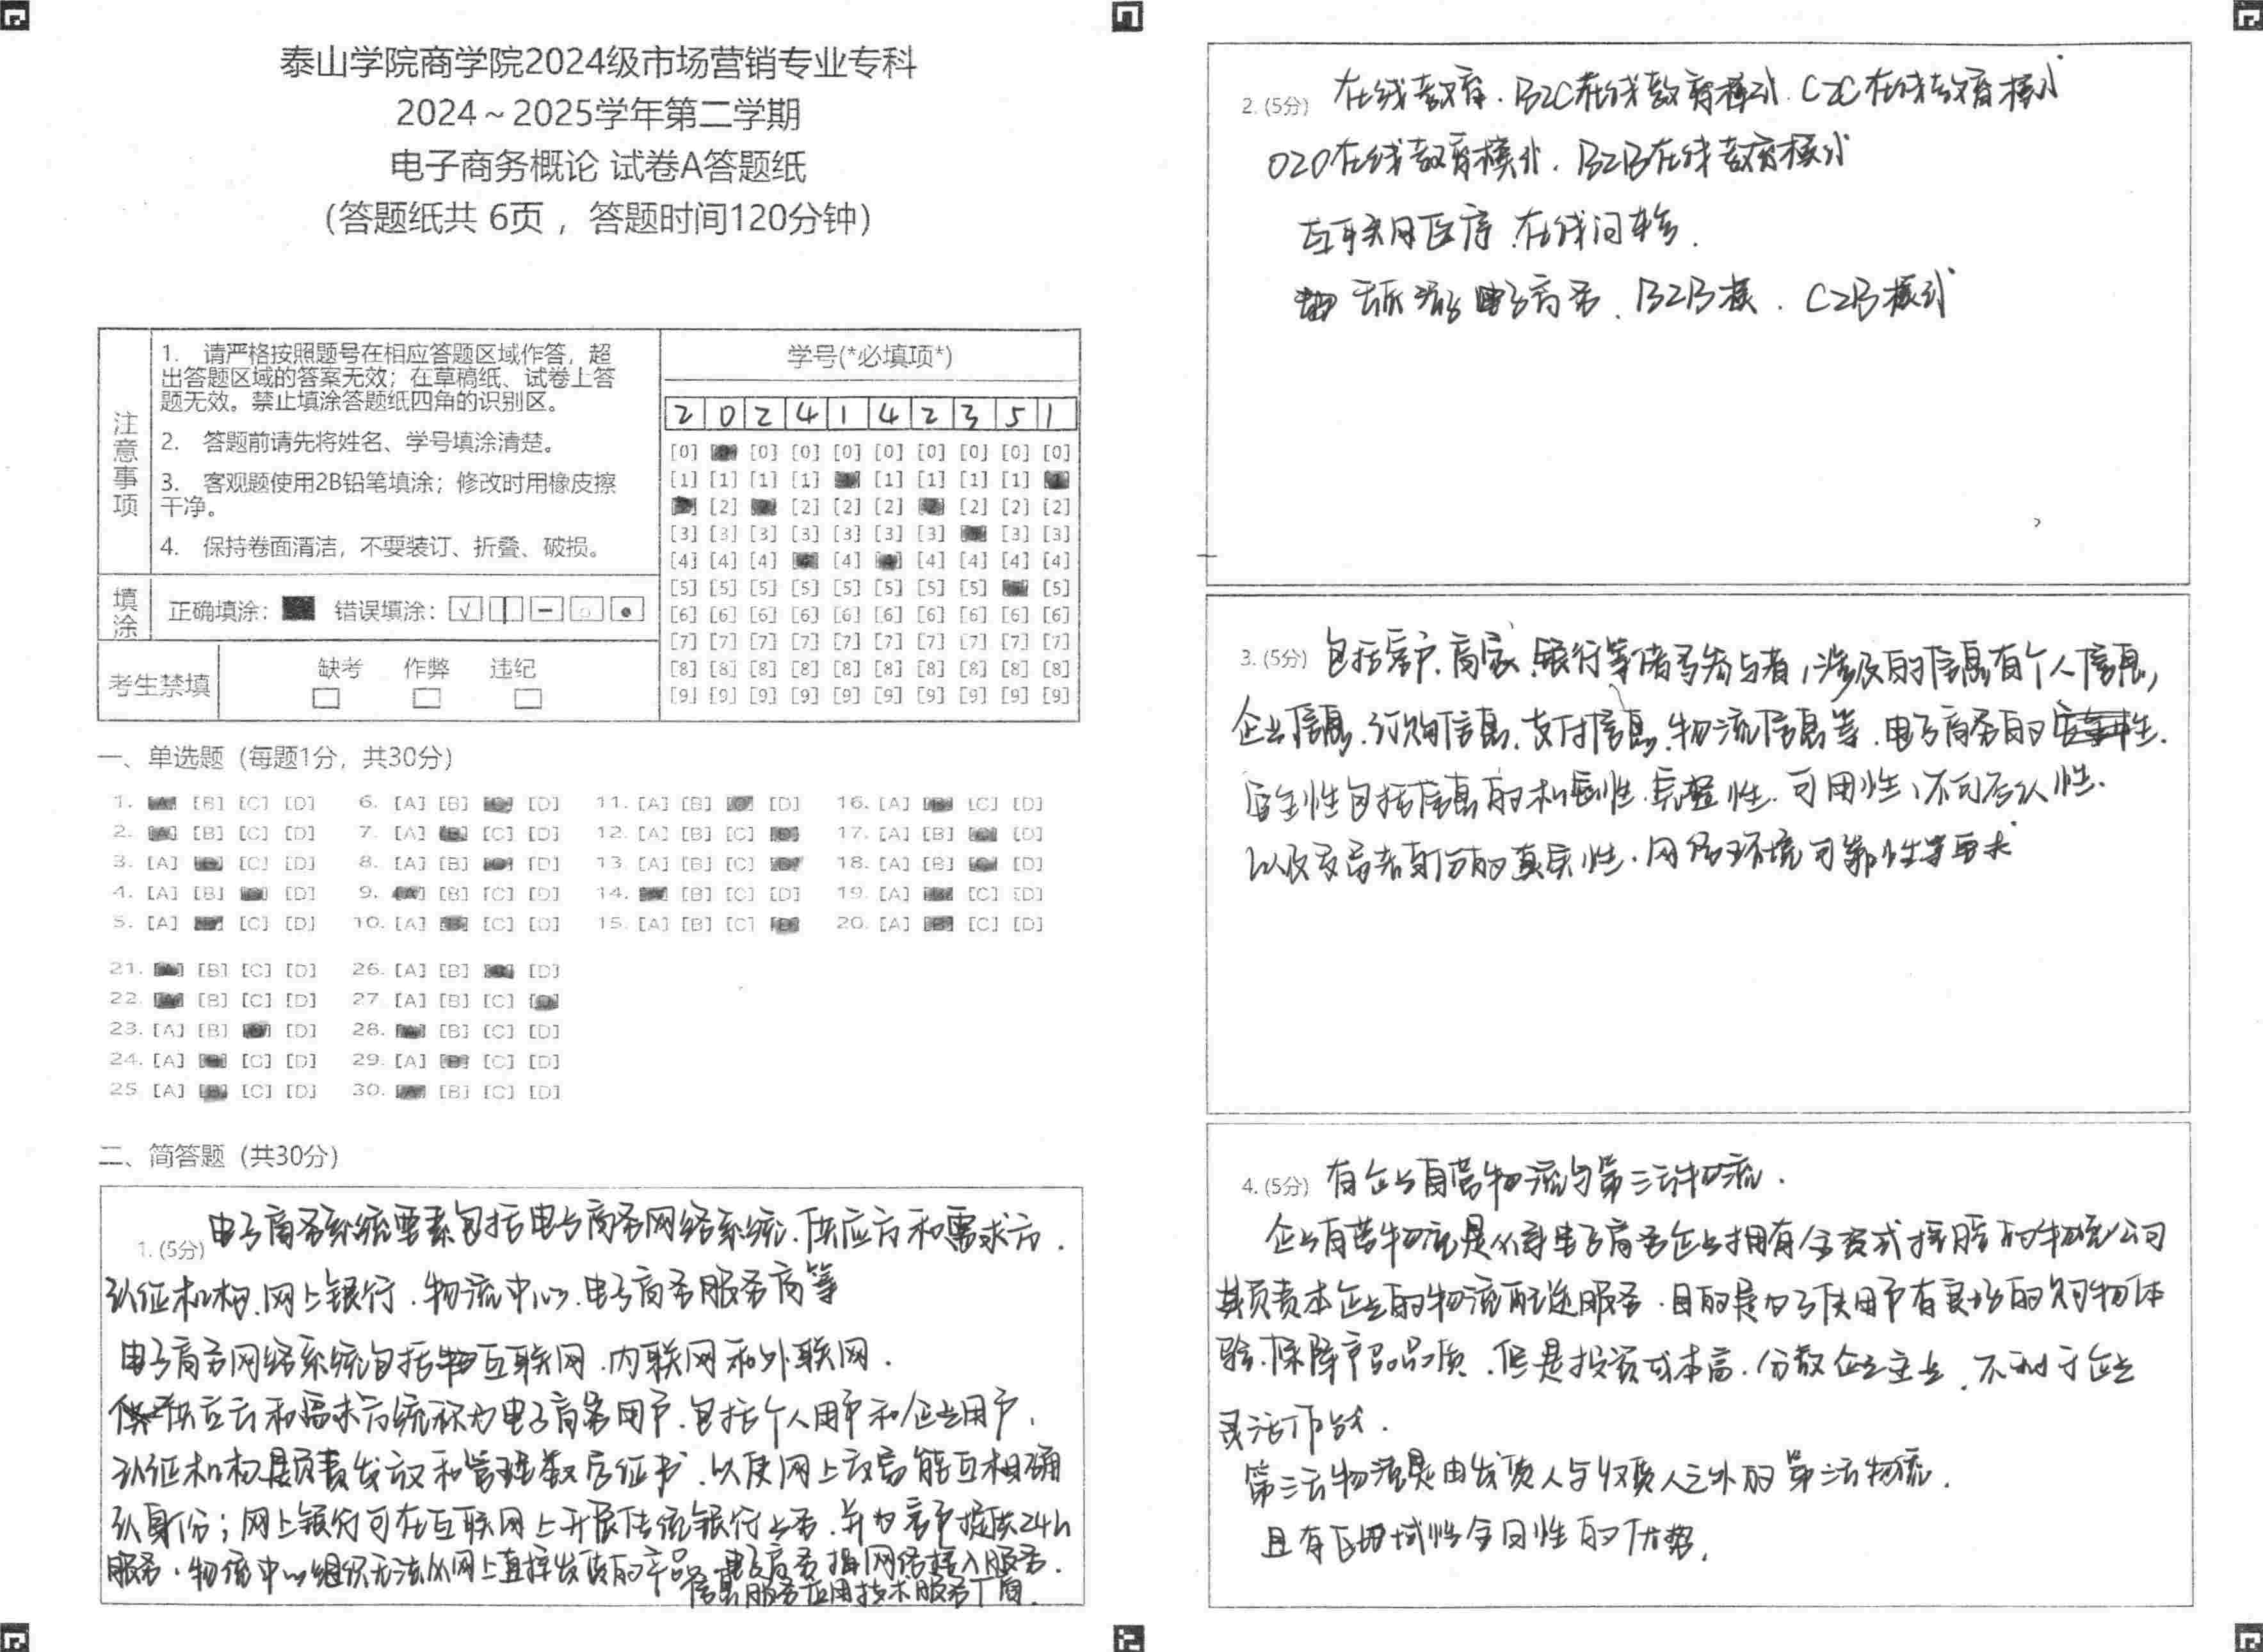 泰山学院商学院2024级市场营销专业专科
2024～2025学年第二学期
电子商务概论 试卷A答题纸
（答题纸共 6页 ，答题时间120分钟）
注意事项
1. 请严格按照题号在相应答题区域作答，超
出答题区域的答案无效；在草稿纸、试卷上答
题无效。禁止填涂答题纸四角的识别区。
2. 答题前请先将姓名、学号填涂清楚。
3. 客观题使用2B铅笔填涂；修改时用橡皮擦
干净。
4. 保持卷面清洁，不要装订、折叠、破损。
填涂
正确填涂： 错误填涂：
考生禁填
缺考 作弊 违纪
学号(*必填项*)
2 0 2 4 1 4 2 3 5 1
[0] [0] [0] [0] [0] [0] [0] [0] [0]
[1] [1] [1] [1] [1] [1] [1] [1]
[2] [2] [2] [2] [2] [2] [2]
[3] [3] [3] [3] [3] [3] [3] [3] [3]
[4] [4] [4] [4] [4] [4] [4] [4]
[5] [5] [5] [5] [5] [5] [5] [5] [5]
[6] [6] [6] [6] [6] [6] [6] [6] [6] [6]
[7] [7] [7] [7] [7] [7] [7] [7] [7] [7]
[8] [8] [8] [8] [8] [8] [8] [8] [8] [8]
[9] [9] [9] [9] [9] [9] [9] [9] [9] [9]
一、单选题（每题1分，共30分）
1. [B] [C] [D] 6. [A] [B] [D] 11. [A] [B] [D] 16. [A] [C] [D]
2. [B] [C] [D] 7. [A] [C] [D] 12. [A] [B] [C] 17. [A] [B] [D]
3. [A] [C] [D] 8. [A] [B] [D] 13. [A] [B] [C] 18. [A] [B] [D]
4. [A] [B] [D] 9. [B] [C] [D] 14. [B] [C] [D] 19. [A] [C] [D]
5. [A] [C] [D] 10. [A] [C] [D] 15. [A] [B] [C] 20. [A] [C] [D]
21. [B] [C] [D] 26. [A] [B] [D]
22. [B] [C] [D] 27. [A] [B] [C]
23. [A] [B] [D] 28. [B] [C] [D]
24. [A] [C] [D] 29. [A] [C] [D]
25. [A] [C] [D] 30. [B] [C] [D]
二、简答题（共30分）
1. (5分) 电子商务系统要素包括电子商务网络系统、供应方和需求方、
认证机构、网上银行、物流中心、电子商务服务商等
电子商务网络系统包括互联网、内联网和外联网.
供应方和需求方统称为电子商务用户、包括个人用户和企业用户、
认证机构是负责发放和管理数字证书、以使网上交易能互相确
认身份；网上银行可在互联网上开展传统银行业务、并为客户提供24h
服务、物流中心组织无法从网上直接发货的产品、电子商务指网络接入服务、
信息服务应用技术服务厂商.
2. (5分) 在线教育、B2C在线教育模式、C2C在线教育模式
O2O在线教育模式、B2B在线教育模式
互联网医疗、在线问诊.
旅游电子商务、B2B模、C2B模式
3. (5分) 包括客户、商家、银行等诸多参与者，涉及的信息有个人信息，
企业信息、订购信息、支付信息、物流信息等、电子商务的
安全性包括信息的机密性、完整性、可用性、不可否认性、
以及交易者身份的真实性、网络环境可靠性等要求
4. (5分) 有企业自营物流与第三方物流.
企业自营物流是从事电子商务企业拥有全资或控股的物流公司
其负责本企业的物流配送服务、目的是为了使用户有良好的购物体
验、保障产品品质、但是投资成本高、分散企业主业、不利于企业
灵活作战.
第三方物流是由发货人与收货人之外的第三方物流.
且有区域性全国性的优势.